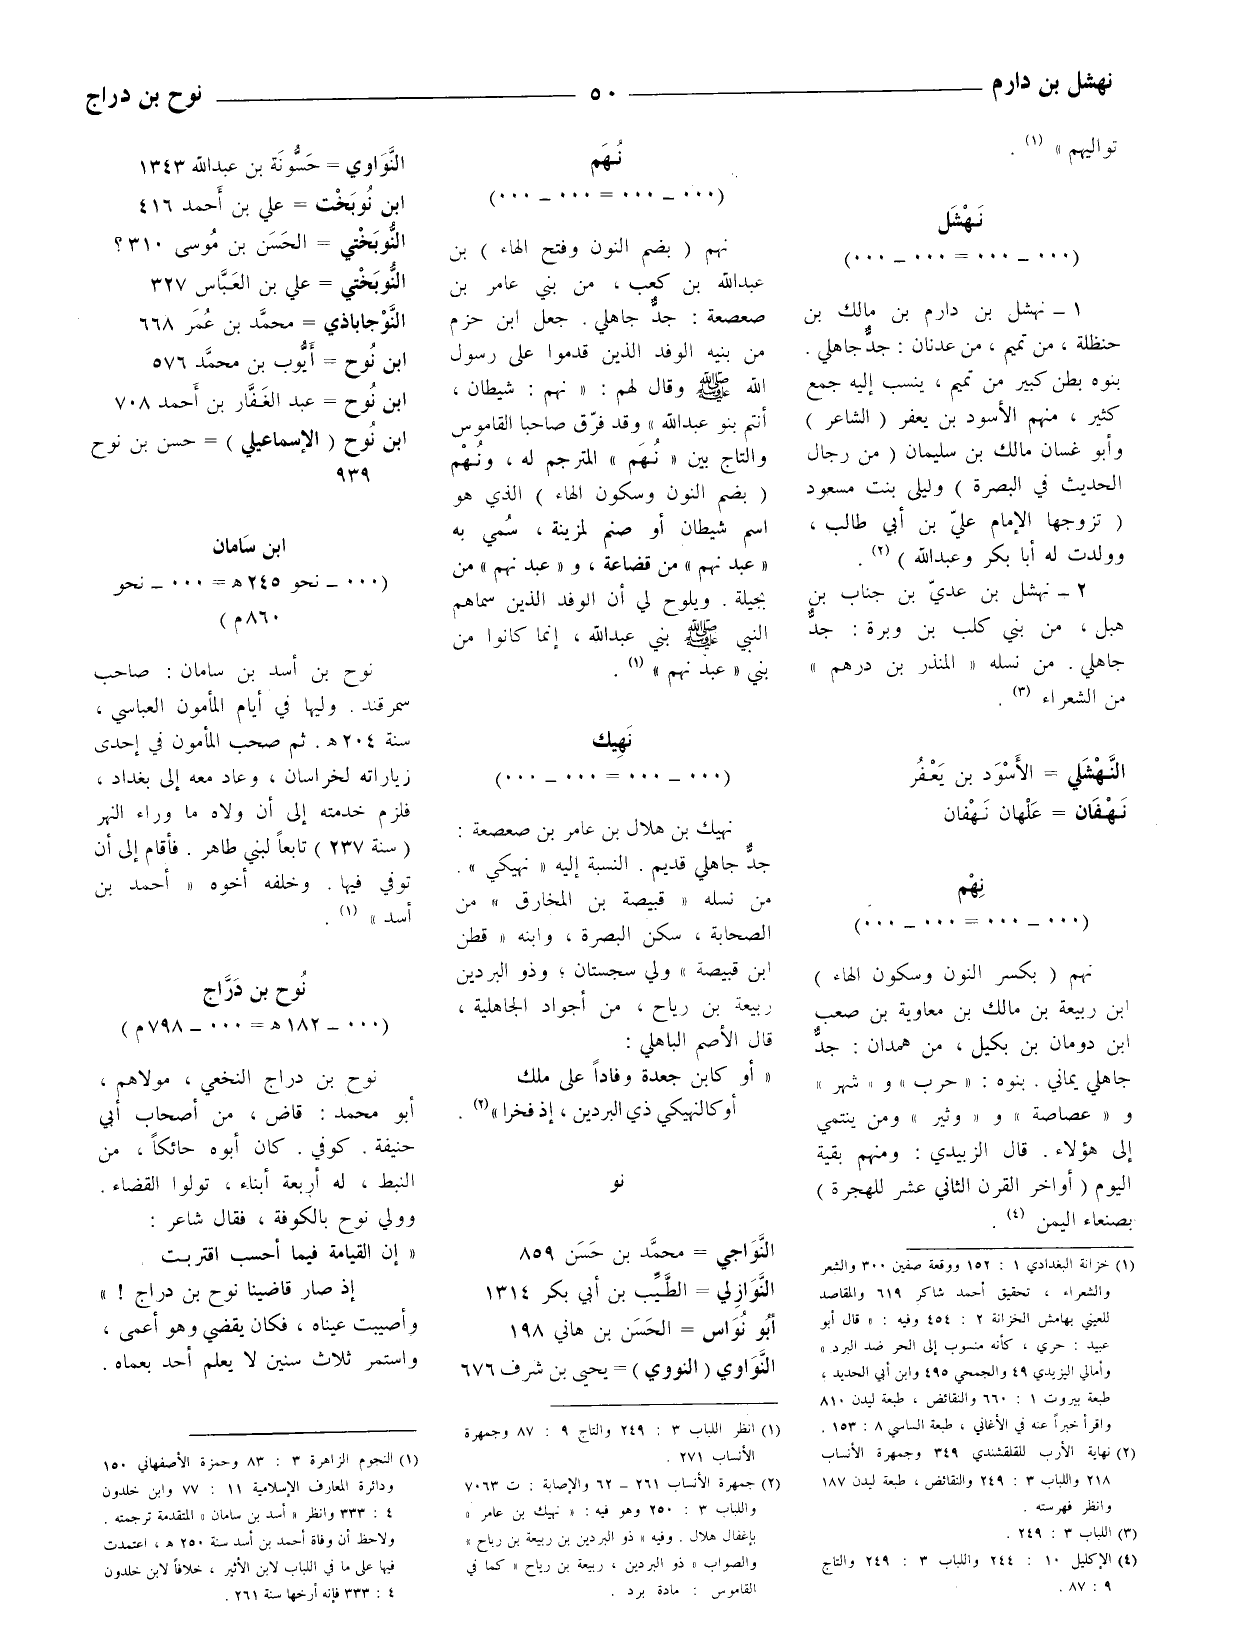 نهشل بن دارم ٥٠ نوح بن دراج
تواليهم » (١) .
نَهْشَل
(٠٠٠ – ٠٠٠ = ٠٠٠ – ٠٠٠)
١ – نهشل بن دارم بن مالك بن
حنظلة ، من تميم ، من عدنان : جدٌّ جاهلي .
بنوه بطن كبير من تميم ، ينسب إليه جمع
كثير ، منهم الأسود بن يعفر ( الشاعر )
وأبو غسان مالك بن سليمان ( من رجال
الحديث في البصرة ) وليلى بنت مسعود
( تزوجها الإمام عليّ بن أبي طالب ،
وولدت له أبا بكر وعبدالله ) (٢) .
٢ – نهشل بن عديّ بن جناب بن
هبل ، من بني كلب بن وبرة : جدٌّ
جاهلي . من نسله « المنذر بن درهم »
من الشعراء (٣) .
النَّهْشَلي = الأَسْوَد بن يَعْفُر
نَهْفَان = عَلْهان نَهْفان
نِهْم
(٠٠٠ – ٠٠٠ = ٠٠٠ – ٠٠٠)
نهم ( بكسر النون وسكون الهاء )
ابن ربيعة بن مالك بن معاوية بن صعب
ابن دومان بن بكيل ، من همدان : جدٌّ
جاهلي يماني . بنوه : « حرب » و « شهر »
و « عصاصة » و « وثير » ومن ينتمي
إلى هؤلاء . قال الزبيدي : ومنهم بقية
اليوم ( أواخر القرن الثاني عشر للهجرة )
بصنعاء اليمن (٤) .
(١) خزانة البغدادي ١ : ١٥٢ ووقعة صفين ٣٠٠ والشعر
والشعراء ، تحقيق أحمد شاكر ٦١٩ والمقاصد
للعيني بهامش الخزانة ٢ : ٤٥٤ وفيه : « قال أبو
عبيد : حري ، كأنه منسوب إلى الحر ضد البرد »
وأمالي اليزيدي ٤٩ والجمحي ٤٩٥ وابن أبي الحديد ،
طبعة بيروت ١ : ٦٦٠ والنقائض ، طبعة ليدن ٨١٠
واقرأ خبراً عنه في الأغاني ، طبعة الساسي ٨ : ١٥٣ .
(٢) نهاية الأرب للقلقشندي ٣٤٩ وجمهرة الأنساب
٢١٨ واللباب ٣ : ٢٤٩ والنقائض ، طبعة ليدن ١٨٧
وانظر فهرسته .
(٣) اللباب ٣ : ٢٤٩ .
(٤) الإكليل ١٠ : ٢٤٤ واللباب ٣ : ٢٤٩ والتاج
٩ : ٨٧ .
نُهَم
(٠٠٠ – ٠٠٠ = ٠٠٠ – ٠٠٠)
نهم ( بضم النون وفتح الهاء ) بن
عبدالله بن كعب ، من بني عامر بن
صعصعة : جدٌّ جاهلي . جعل ابن حزم
من بنيه الوفد الذين قدموا على رسول
الله ﷺ وقال لهم : « نهم : شيطان ،
أنتم بنو عبدالله » وقد فرّق صاحبا القاموس
والتاج بين « نُهَم » المترجم له ، ونُهْم
( بضم النون وسكون الهاء ) الذي هو
اسم شيطان أو صنم لمزينة ، سُمي به
« عبد نهم » من قضاعة ، و « عبد نهم » من
بجيلة . ويلوح لي أن الوفد الذين سماهم
النبي ﷺ بني عبدالله ، إنما كانوا من
بني « عبد نهم » (١) .
نَهِيك
(٠٠٠ – ٠٠٠ = ٠٠٠ – ٠٠٠)
نهيك بن هلال بن عامر بن صعصعة :
جدٌّ جاهلي قديم . النسبة إليه « نهيكي » .
من نسله « قبيصة بن المخارق » من
الصحابة ، سكن البصرة ، وابنه « قطن
ابن قبيصة » ولي سجستان ؛ وذو البردين
ربيعة بن رياح ، من أجواد الجاهلية ،
قال الأصم الباهلي :
« أو كابن جعدة وفاداً على ملك
أو كالنهيكي ذي البردين ، إذ فخرا » (٢) .
نو
النَّوَاجي = محمَّد بن حَسَن ٨٥٩
النَّوَازلي = الطَّيِّب بن أبي بكر ١٣١٤
أبُو نُوَاس = الحَسَن بن هاني ١٩٨
النَّوَاوي ( النووي ) = يحيى بن شرف ٦٧٦
(١) انظر اللباب ٣ : ٢٤٩ والتاج ٩ : ٨٧ وجمهرة
الأنساب ٢٧١ .
(٢) جمهرة الأنساب ٢٦١ – ٦٢ والإصابة : ت ٧٠٦٣
واللباب ٣ : ٢٥٠ وهو فيه : « نهيك بن عامر »
بإغفال هلال . وفيه « ذو البردين بن ربيعة بن رياح »
والصواب « ذو البردين ، ربيعة بن رياح » كما في
القاموس : مادة برد .
النَّوَاوي = حَسُّونَة بن عبدالله ١٣٤٣
ابن نُوبَخْت = علي بن أَحمد ٤١٦
النُّوبَخْتي = الحَسَن بن مُوسى ٣١٠ ؟
النُّوبَخْتي = علي بن العَبَّاس ٣٢٧
النَّوْجاباذي = محمَّد بن عُمَر ٦٦٨
ابن نُوح = أَيُّوب بن محمَّد ٥٧٦
ابن نُوح = عبد الغَفَّار بن أَحمد ٧٠٨
ابن نُوح ( الإسماعيلي ) = حسن بن نوح
٩٣٩
ابن سَامان
(٠٠٠ – نحو ٢٤٥ ه = ٠٠٠ – نحو
٨٦٠ م )
نوح بن أسد بن سامان : صاحب
سمرقند . وليها في أيام المأمون العباسي ،
سنة ٢٠٤ ه . ثم صحب المأمون في إحدى
زياراته لخراسان ، وعاد معه إلى بغداد ،
فلزم خدمته إلى أن ولاه ما وراء النهر
( سنة ٢٣٧ ) تابعاً لبني طاهر . فأقام إلى أن
توفي فيها . وخلفه أخوه « أحمد بن
أسد » (١) .
نُوح بن دَرَّاج
(٠٠٠ – ١٨٢ ه = ٠٠٠ – ٧٩٨ م )
نوح بن دراج النخعي ، مولاهم ،
أبو محمد : قاض ، من أصحاب أبي
حنيفة . كوفي . كان أبوه حائكاً ، من
النبط ، له أربعة أبناء ، تولوا القضاء .
وولي نوح بالكوفة ، فقال شاعر :
« إن القيامة فيما أحسب اقتربت
إذ صار قاضينا نوح بن دراج ! »
وأصيبت عيناه ، فكان يقضي وهو أعمى ،
واستمر ثلاث سنين لا يعلم أحد بعماه .
(١) النجوم الزاهرة ٣ : ٨٣ وحمزة الأصفهاني ١٥٠
ودائرة المعارف الإسلامية ١١ : ٧٧ وابن خلدون
٤ : ٣٣٣ وانظر « أسد بن سامان » المتقدمة ترجمته .
ولاحظ أن وفاة أحمد بن أسد سنة ٢٥٠ ه ، اعتمدت
فيها على ما في اللباب لابن الأثير ، خلافاً لابن خلدون
٤ : ٣٣٣ فإنه أرخها سنة ٢٦١ .